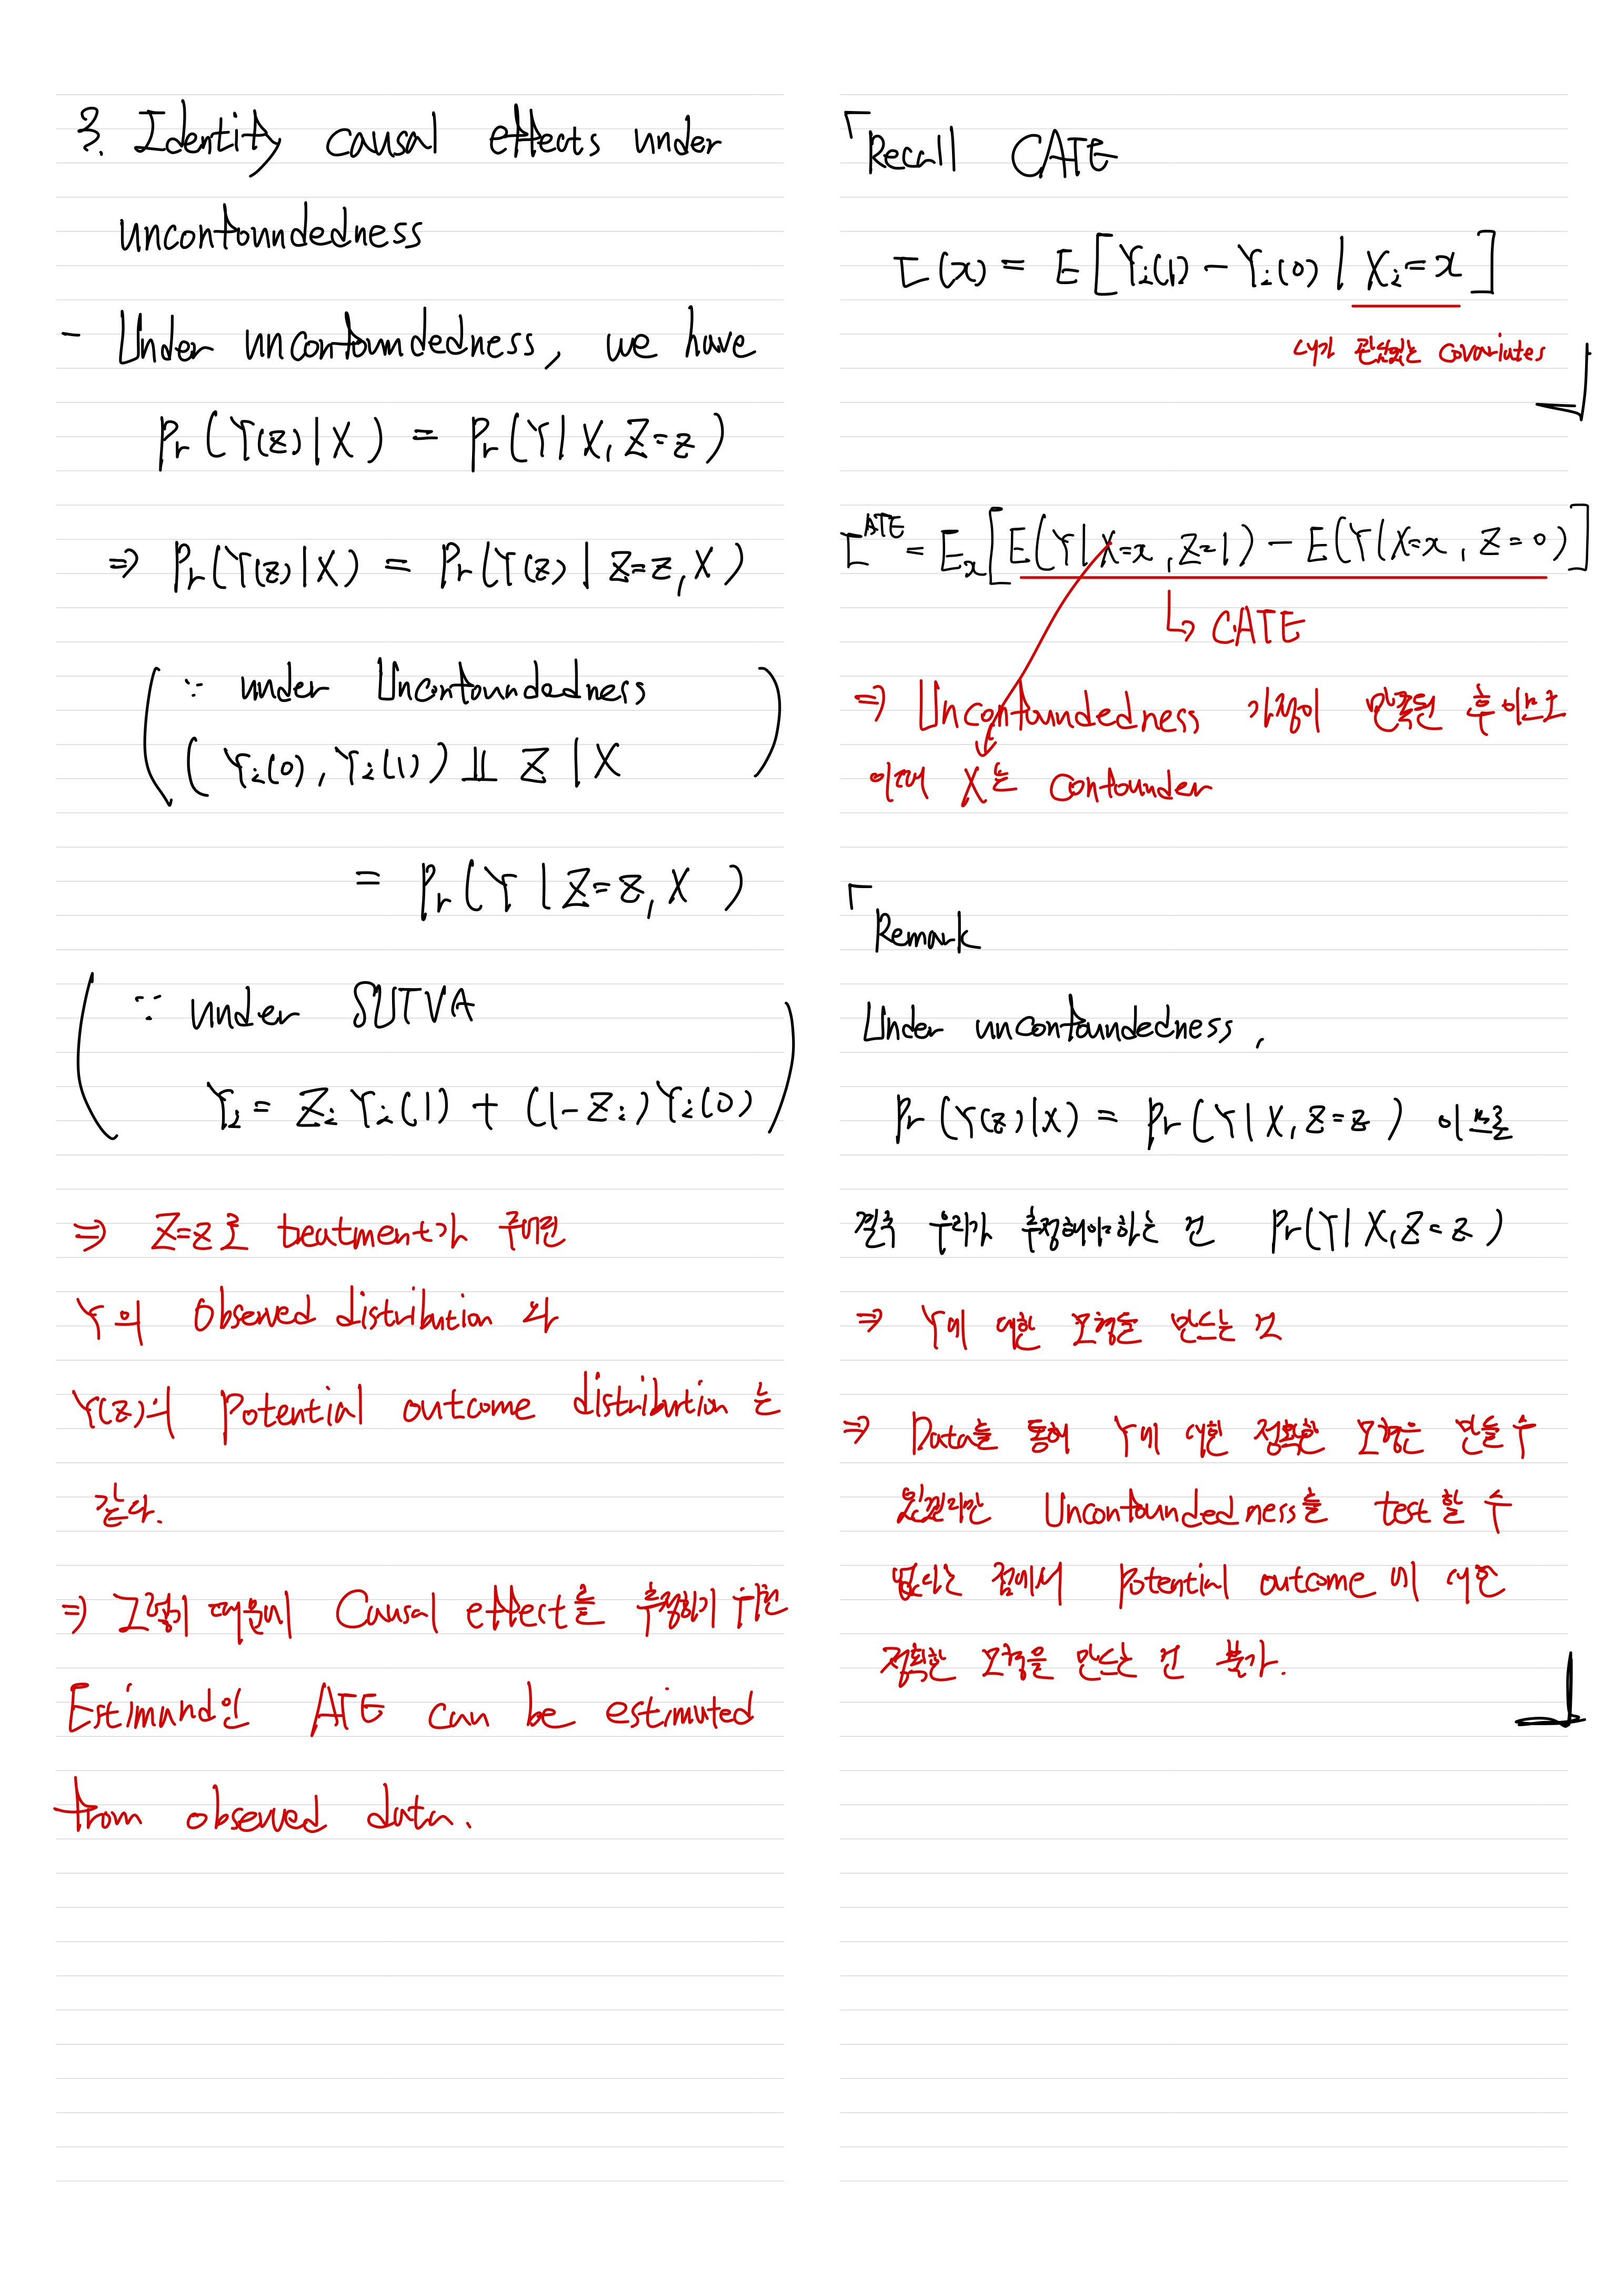 3. Identify causal effects under
unconfoundedness
- Under unconfoundedness, we have
Pr(Y(z)|X) = Pr(Y|X, Z=z)
⇒ Pr(Y(z)|X) = Pr(Y(z)|Z=z, X)
( ∵ under Unconfoundedness
( Yi(0), Yi(1) ) ⫫ Z | X )
= Pr(Y|Z=z, X)
( ∵ under SUTVA
Yi = Zi Yi(1) + (1-Zi) Yi(0) )
⇒ Z=z로 treatment가 주어진
Y의 Observed distribution 와
Y(z)의 Potential outcome distribution 는
같다.
⇒ 그렇기 때문에 Causal effect를 추정하기 위한
Estimand인 ATE can be estimated
from observed data.
「Recall CATE
τ(x) = E[Yi(1) - Yi(0) | Xi=x]
내가 관심있는 covariates 」
τ^ATE = Ex[E(Y|X=x, Z=1) - E(Y|X=x, Z=0)]
↳ CATE
⇒ Unconfoundedness 가정이 만족된 후 이므로
이때 X는 confounder
「Remark
Under unconfoundedness,
Pr(Y(z)|X) = Pr(Y|X, Z=z) 이므로
결국 우리가 추정해야하는 건 Pr(Y|X, Z=z)
⇒ Y에 대한 모형을 만드는 것
⇒ Data를 통해 Y에 대한 정확한 모형은 만들 수
있겠지만 Unconfoundedness를 test할 수
없다는 점에서 potential outcome에 대한
정확한 모형을 만드는 건 불가. 」